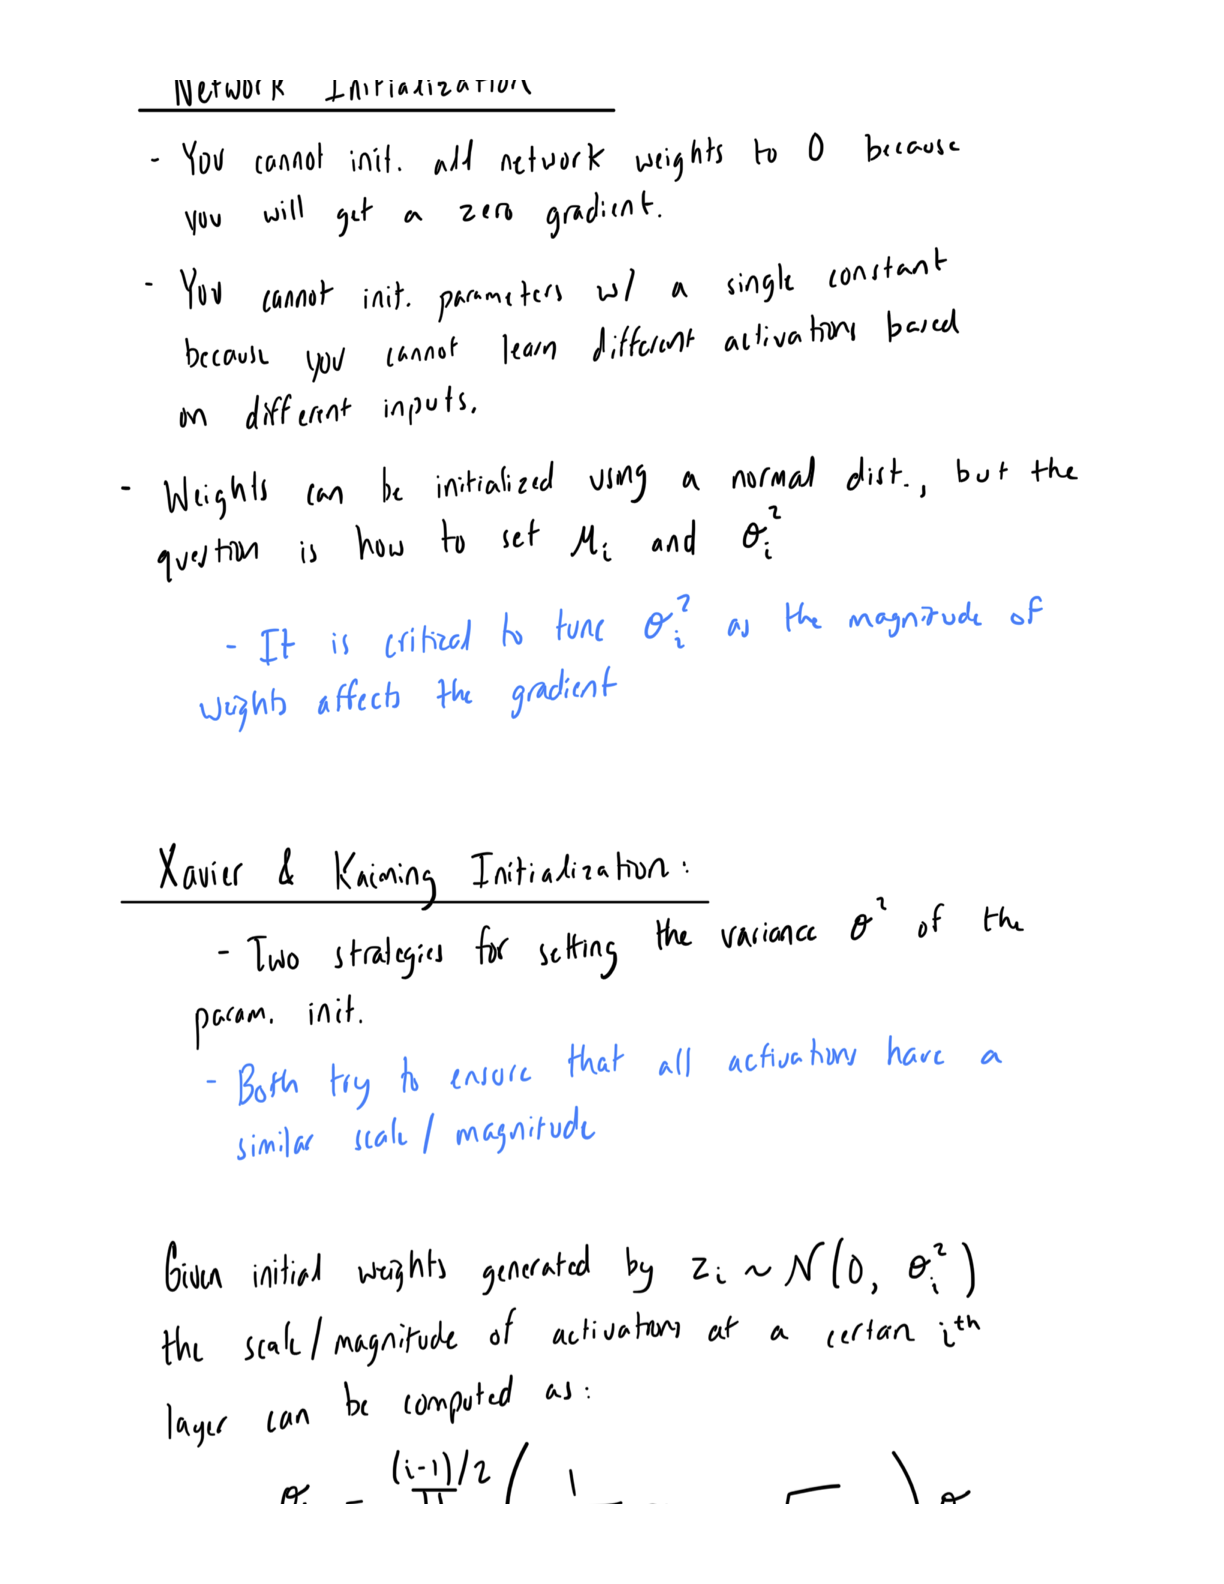 Network Initialization
- You cannot init. all network weights to 0 because
you will get a zero gradient.
- You cannot init. parameters w/ a single constant
because you cannot learn different activations based
on different inputs.
- Weights can be initialized using a normal dist., but the
question is how to set μᵢ and σᵢ²
- It is critical to tune σᵢ² as the magnitude of
weights affects the gradient
Xavier & Kaiming Initialization:
- Two strategies for setting the variance σ² of the
param. init.
- Both try to ensure that all activations have a
similar scale/magnitude
Given initial weights generated by zᵢ ~ N(0, σᵢ²)
the scale/magnitude of activations at a certan iᵗʰ
layer can be computed as:
(i-1)/2